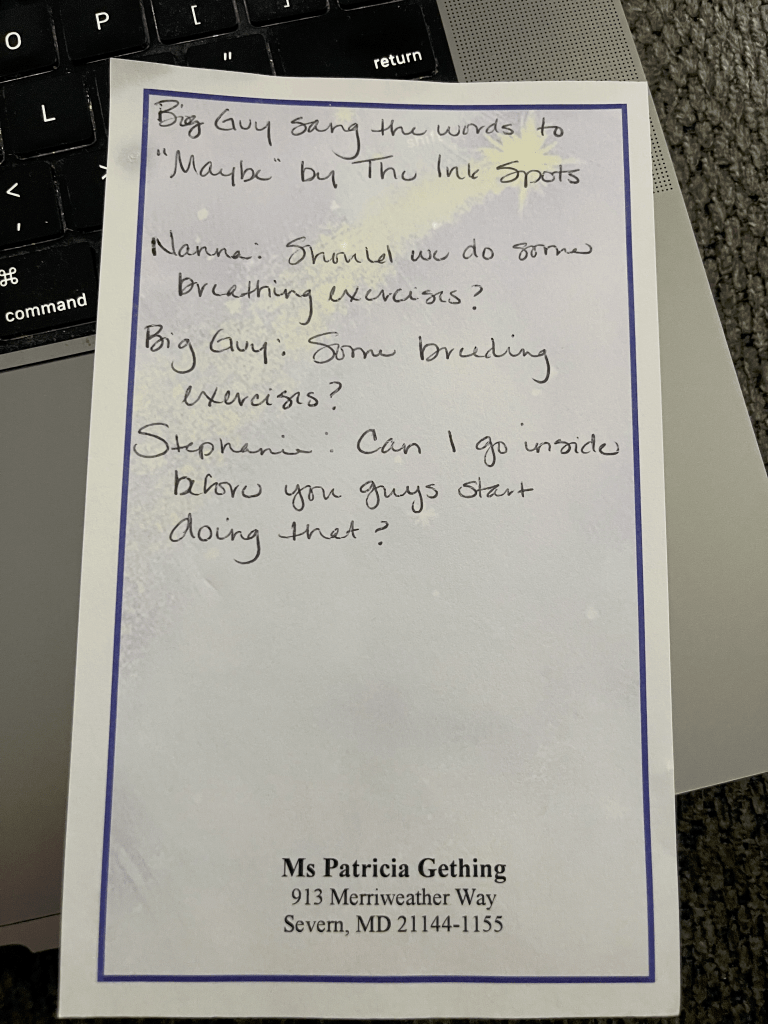 O
P
[
]
L
"
return
<
,
>
⌘
command
Big Guy sang the words to
"Maybe" by The Ink Spots
Nanna: Should we do some
breathing exercises?
Big Guy: Some breeding
exercises?
Stephanie: Can I go inside
before you guys start
doing that?
Ms Patricia Gething
913 Merriweather Way
Severn, MD 21144-1155